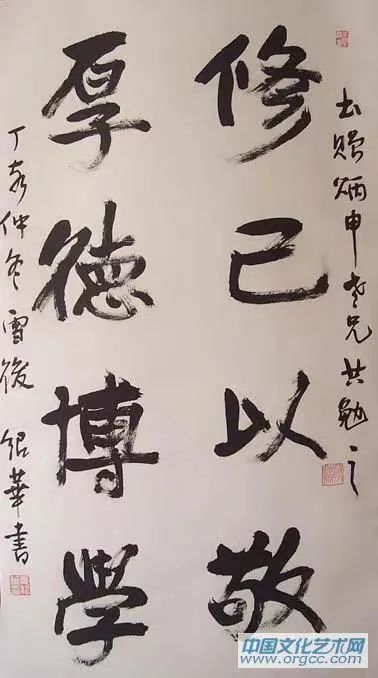 书赠炳申老兄共勉之
修己以敬
厚德博學
丁亥仲冬雪後 绍華書
中国文化艺术网
www.orgcc.com